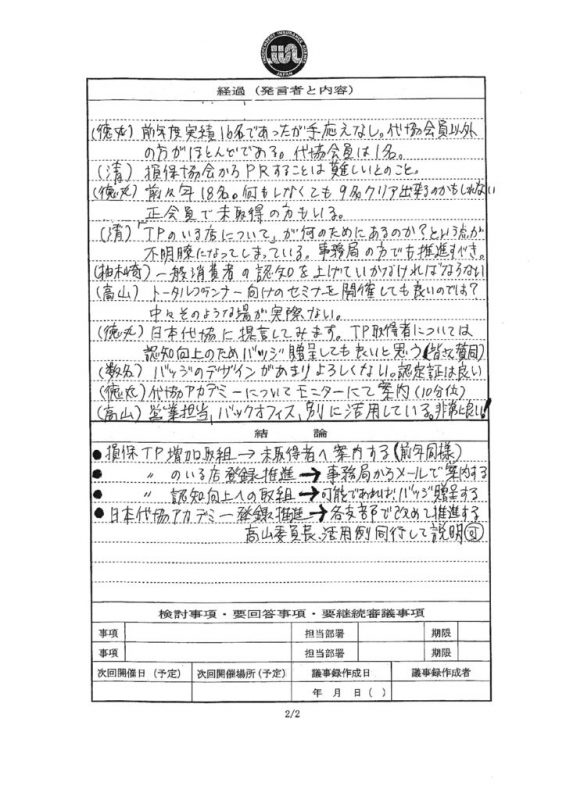 INDEPENDENT INSURANCE AGENTS
JAPAN
経過（発言者と内容）
(徳丸) 前年度実績16名であったが手応えなし。代協会員以外
の方がほとんどである。代協会員は1名。
(清) 損保協会からPRすることは難しいとのこと。
(徳丸) 前々年18名。何もしなくても9名クリア出来るのかもしれない
正会員で未取得の方もいる。
(清)「TPのいる店について」が何のためにあるのか？という点が
不明瞭になってしまっている。事務局の方でも推進すべき。
(柚木崎) 一般消費者の認知を上げていかなければならない
(高山) トータルプランナー向けのセミナーを開催しても良いのでは？
中々そのような場が実際ない。
(徳丸) 日本代協に提言してみます。TP取得者については
認知向上のためバッジ贈呈しても良いと思う(皆さん賛同)
(数名) バッジのデザインがあまりよろしくない。認定証は良い
(徳丸) 代協アカデミーについてモニターにて案内(10分位)
(高山) 営業担当、バックオフィス、別に活用している。非常に良い!
結　論
●損保TP増加取組→未取得者へ案内する(前年同様)
● 〃 のいる店登録推進→事務局からメールで案内する
● 〃 認知向上への取組→可能であればバッジ贈呈する
●日本代協アカデミー登録推進→各支部で改めて推進する
高山委員長、活用例同行して説明㊀
検討事項・要回答事項・要継続審議事項
事項 担当部署 期限
事項 担当部署 期限
次回開催日（予定） 次回開催場所（予定） 議事録作成日 議事録作成者
年 月 日（ ）
2/2